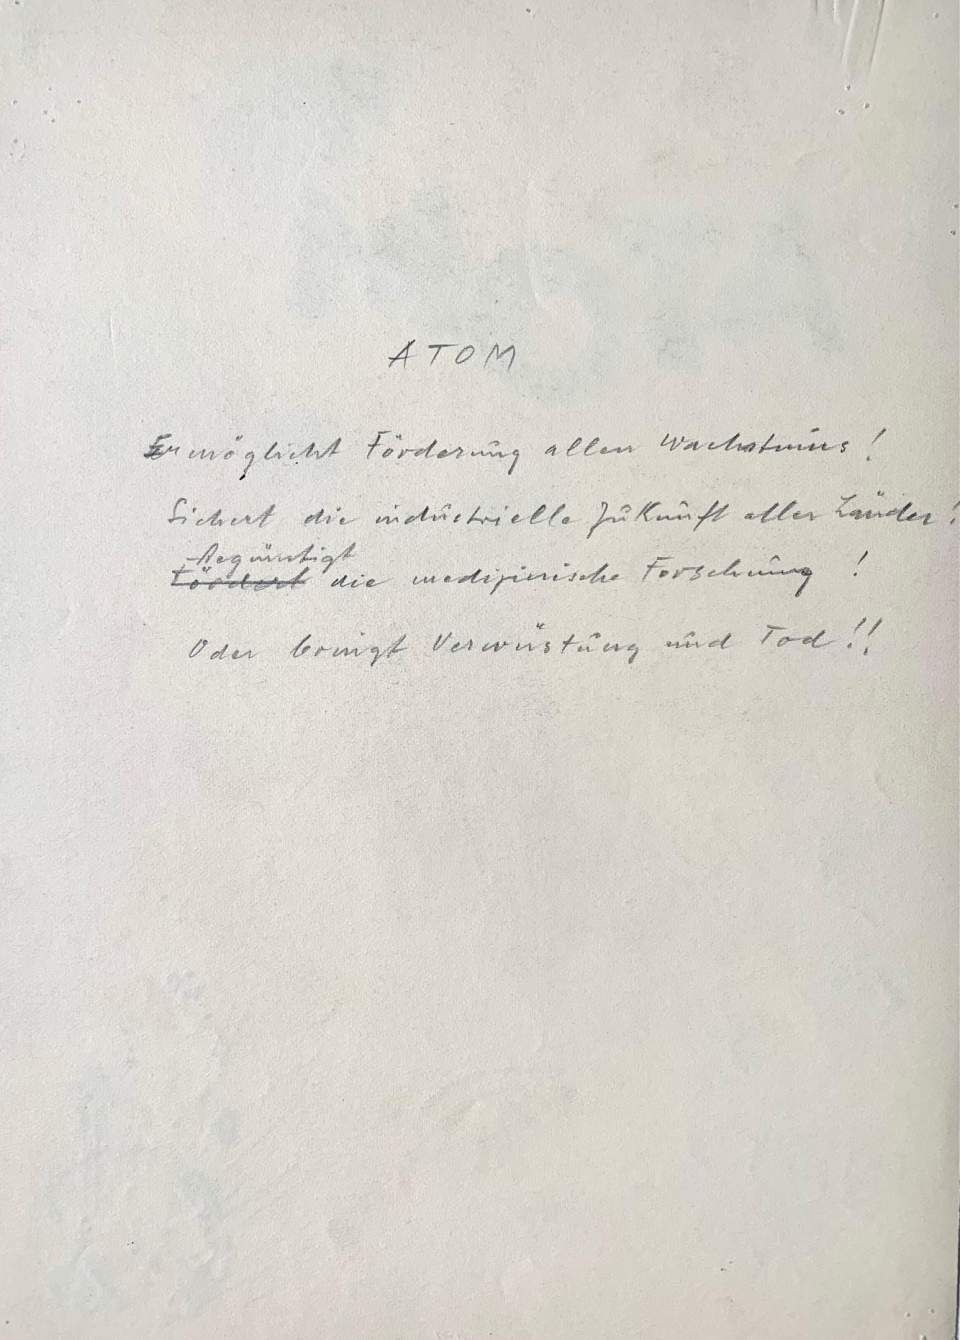 ATOM
Ermöglicht Förderung allen Wachstums!
Sichert die industrielle Zukunft aller Länder!
Begünstigt
Fördert die medizinische Forschung!
Oder bringt Verwüstung und Tod!!